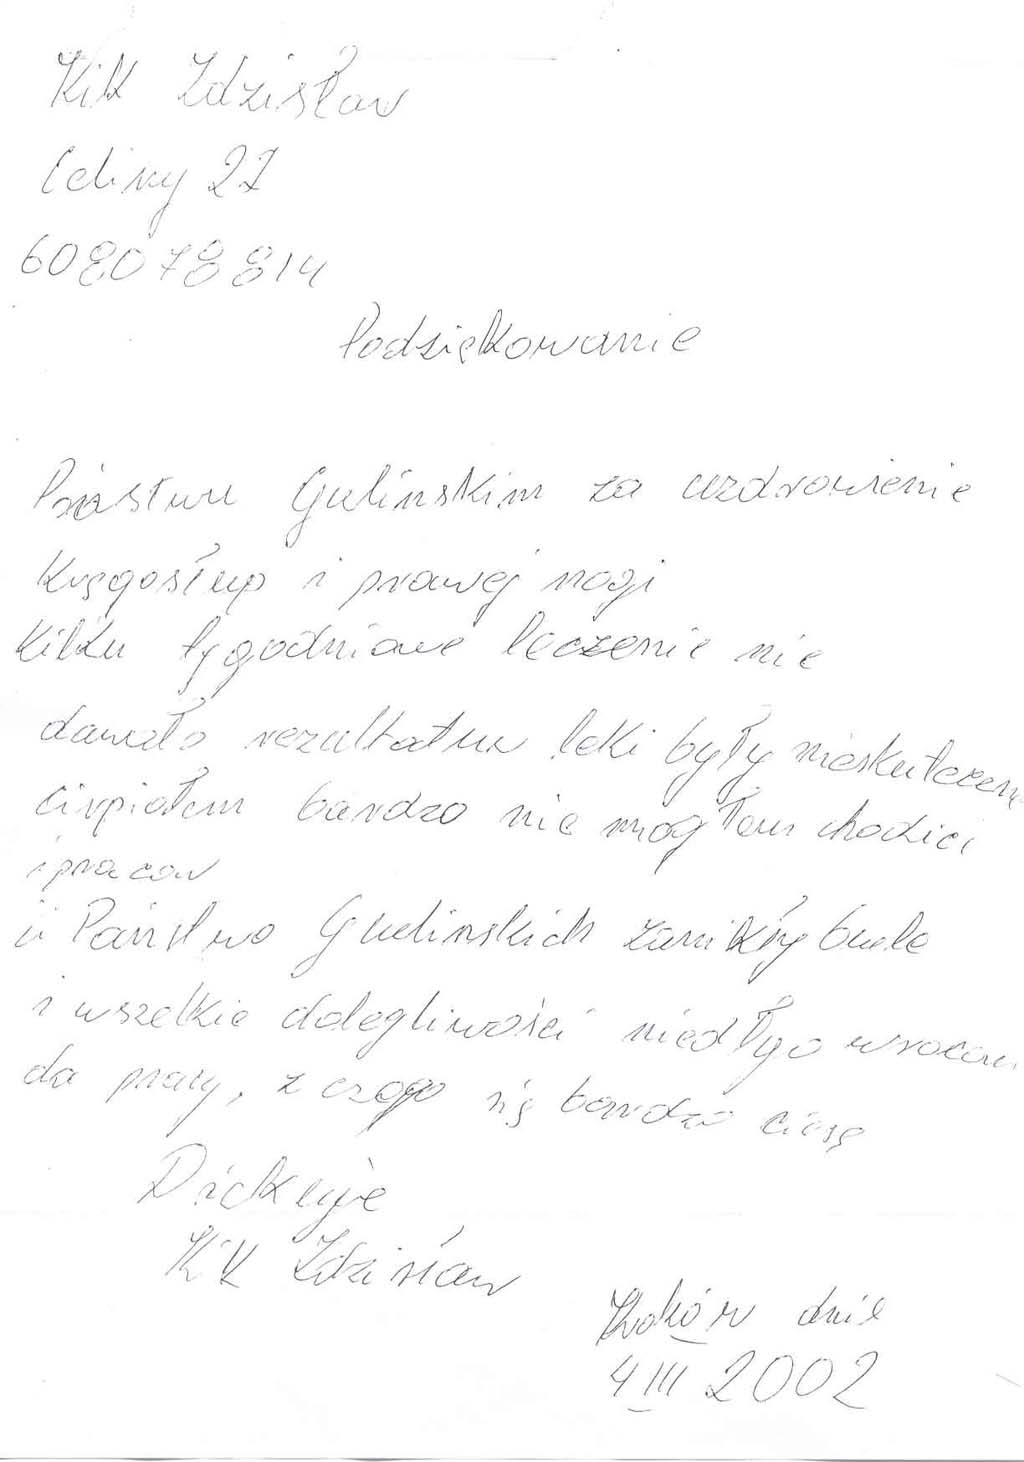 Kik Zdzisław
Celiny 27
608078814
Podziękowanie
Państwu Gulinskim za uzdrowienie
Kręgosłup i prawej nogi
Kilku tygodniowe leczenie nie
dawało rezultatuw leki były nieskuteczne
cirpiałem bardzo nie mogłem chodici
i pracow
u Państwo Gulinskich zanikły bule
i wszelkie dolegliwości niedłgo wracam
do pracy, z czego się bardzo ciesę
Dziekuje
Kik Zdzisław
Kraków dnie
4 III 2002